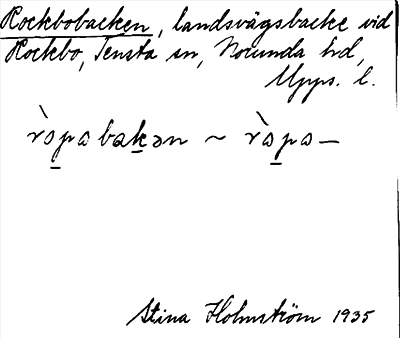 Rockbobacken, landsvägsbacke vid
Rockbo, Tensta sn, Norunda hd,
Upps. l.
ròpabakən ~ ròpa–
Stina Holmström 1935